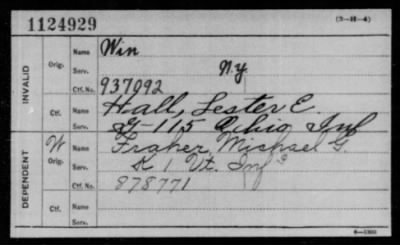 1124929
(3-H-4)
INVALID
Orig.
Name
Win
Serv.
N.Y.
Ctf. No.
937092
Ctf.
Name
Hall, Lester E.
Serv.
G-115 Ohio Inf
DEPENDENT
W
Orig.
Name
Fraher, Michael G.
Serv.
K 1 Vt. Inf
Ctf. No.
878771
Ctf.
Name
Serv.